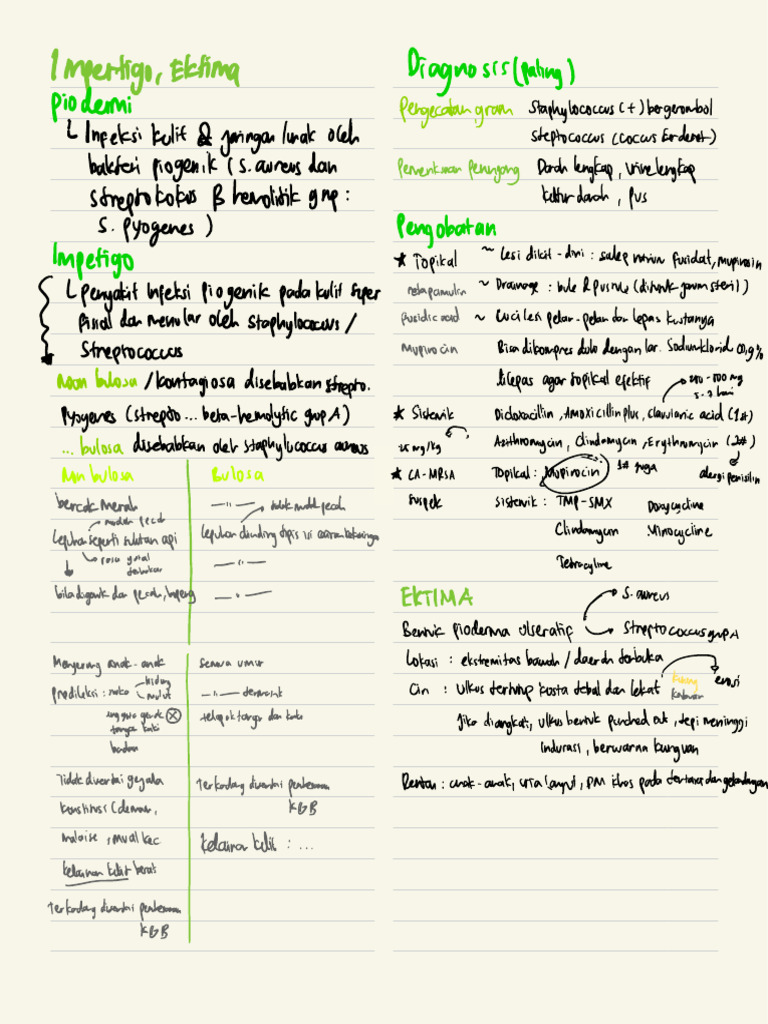 Impertigo, Ektima
Piodermi
Infeksi kulit & jaringan lunak oleh
bakteri piogenik (S. aureus dan
streptokokus β hemolitik grup :
S. pyogenes)
Impetigo
Penyakit infeksi piogenik pada kulit super
fisial dan menular oleh Staphylococcus /
Streptococcus
Non bulosa / kontagiosa disebabkan strepto.
Pyogenes (strepto ... beta-hemolytic grup A)
... bulosa disebabkan oleh staphylococcus aureus
Non bulosa
Bulosa
bercak merah
mudah pecah
tidak mudah pecah
Lepuhan seperti sulutan api
Lepuhan dinding tipis isi cairan kekuningan
rasa gatal
bila digaruk dan pecah,
Menyerang anak-anak
semua umur
Predileksi : muka
hidung
mulut
anggota gerak
tangan kaki
badan
Tidak disertai gejala
Terkadang disertai pembesaran
KGB
konstitusi (demam,
malaise, mual kec.
Kelainan kulit : ...
kelainan kulit berat
Terkadang disertai pembesaran
KGB
Diagnosis (paling)
Pengecatan gram
Staphylococcus (+) bergerombol
Steptococcus (coccus berderet)
Pemeriksaan Penunjang
Darah lengkap, urine lengkap
kultur darah, pus
Pengobatan
Topikal
~ Lesi dikit-dini : salep natrium fusidat, mupirosin
retapamulin
~ Drainage : bule & pustule (ditusuk jarum steril)
Fusidic acid
~ Cuci lesi pelan-pelan dan lepas krustanya
Mupirocin
Bisa dikompres dulu dengan lar. Sodium klorid 0,9%
dilepas agar topikal efektif
250-500 mg
5-7 hari
Sistemik
Dicloxacillin, Amoxicillin plus, clavulanic acid (1#)
25 mg/kg
Azithromycin, Clindamycin, Erythromycin (2#)
alergi penisilin
CA-MRSA
Topikal : Mupirocin
1# juga
suspek
sistemik : TMP-SMX
Doxycycline
Clindamycin
Minocycline
Tetracyline
EKTIMA
S. aureus
Bentuk pioderma ulseratif
Streptococcus grup A
Lokasi : ekstremitas bawah / daerah terbuka
Ciri : Ulkus tertutup krusta tebal dan lekat
erosi
Jika diangkat, ulkus bentuk punched out, tepi meninggi
indurasi, berwarna keunguan
Rentan : anak-anak, usia lanjut, DM khos pada tentara dan gelandangan